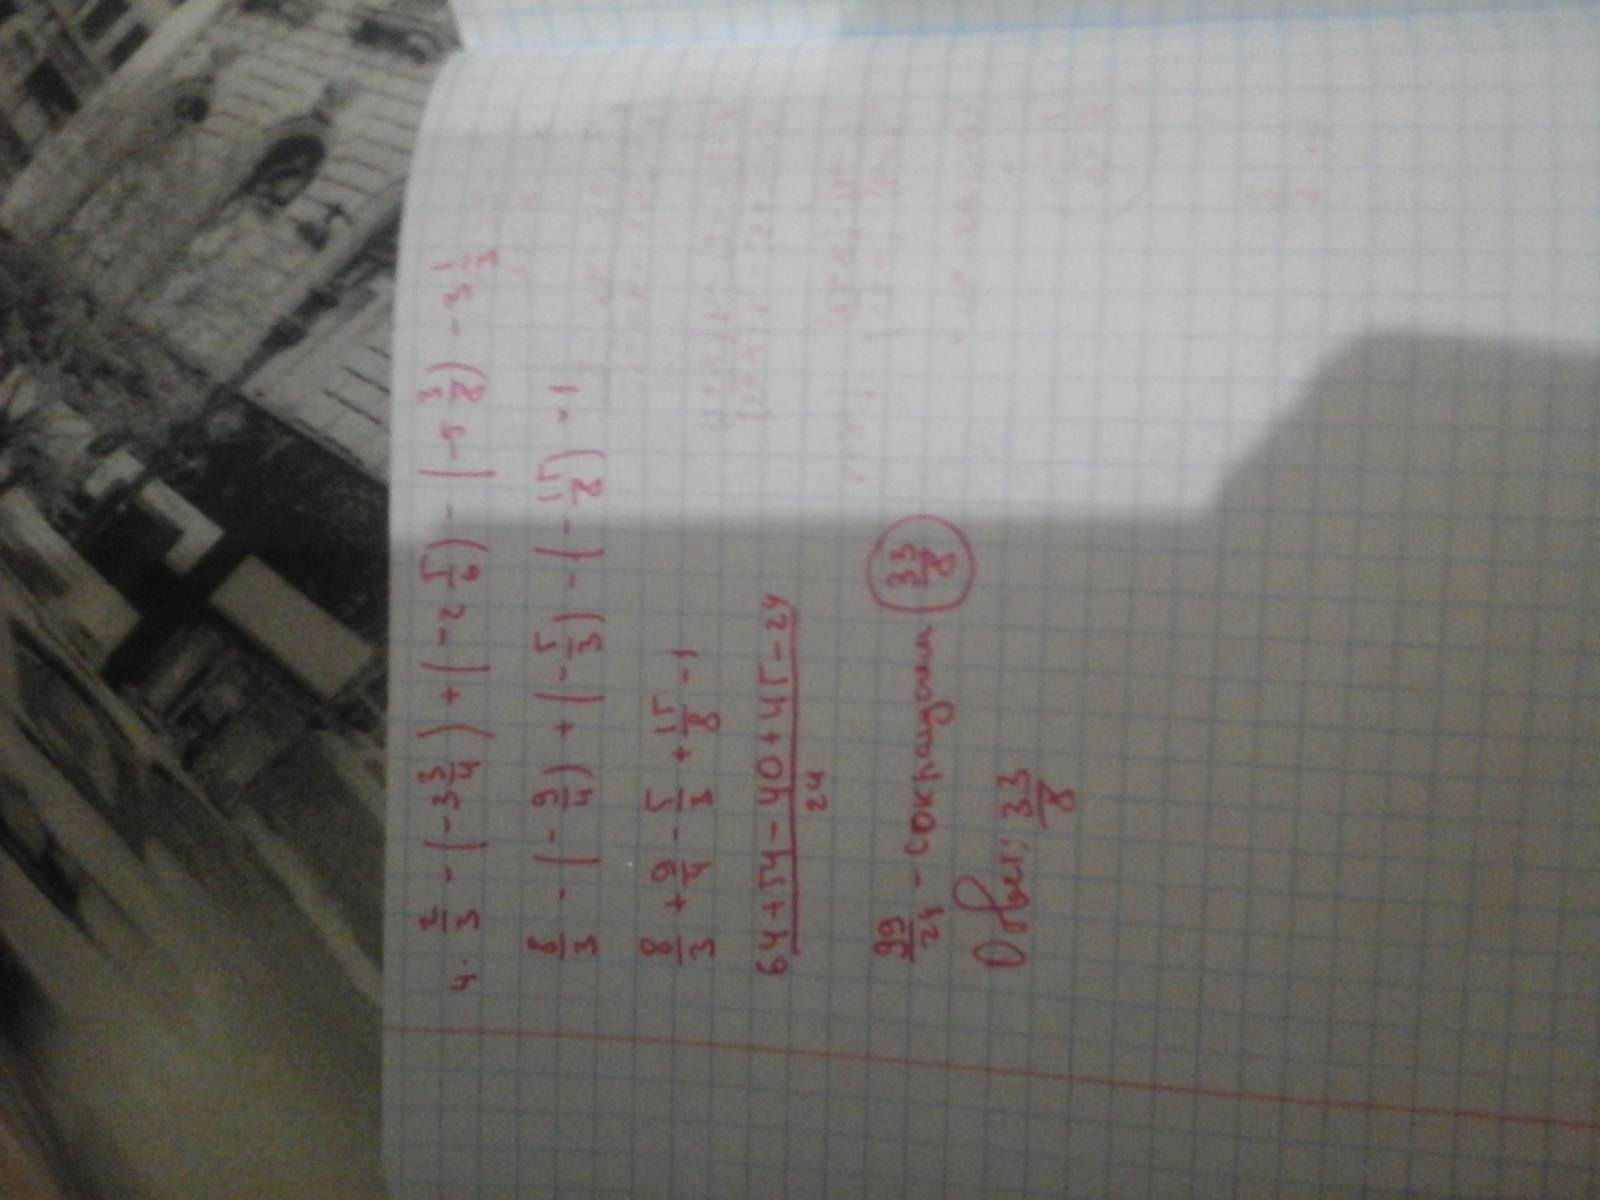 4 · 2/3 - (-3 3/4) + (-2 5/6) - (-5 3/8) - 3 1/3
8/3 - (-9/4) + (-5/3) - (-15/8) - 1
8/3 + 9/4 - 5/3 + 15/8 - 1
64+54-40+45-24
24
99/24 - сокращаем 33/8
Ответ: 33/8